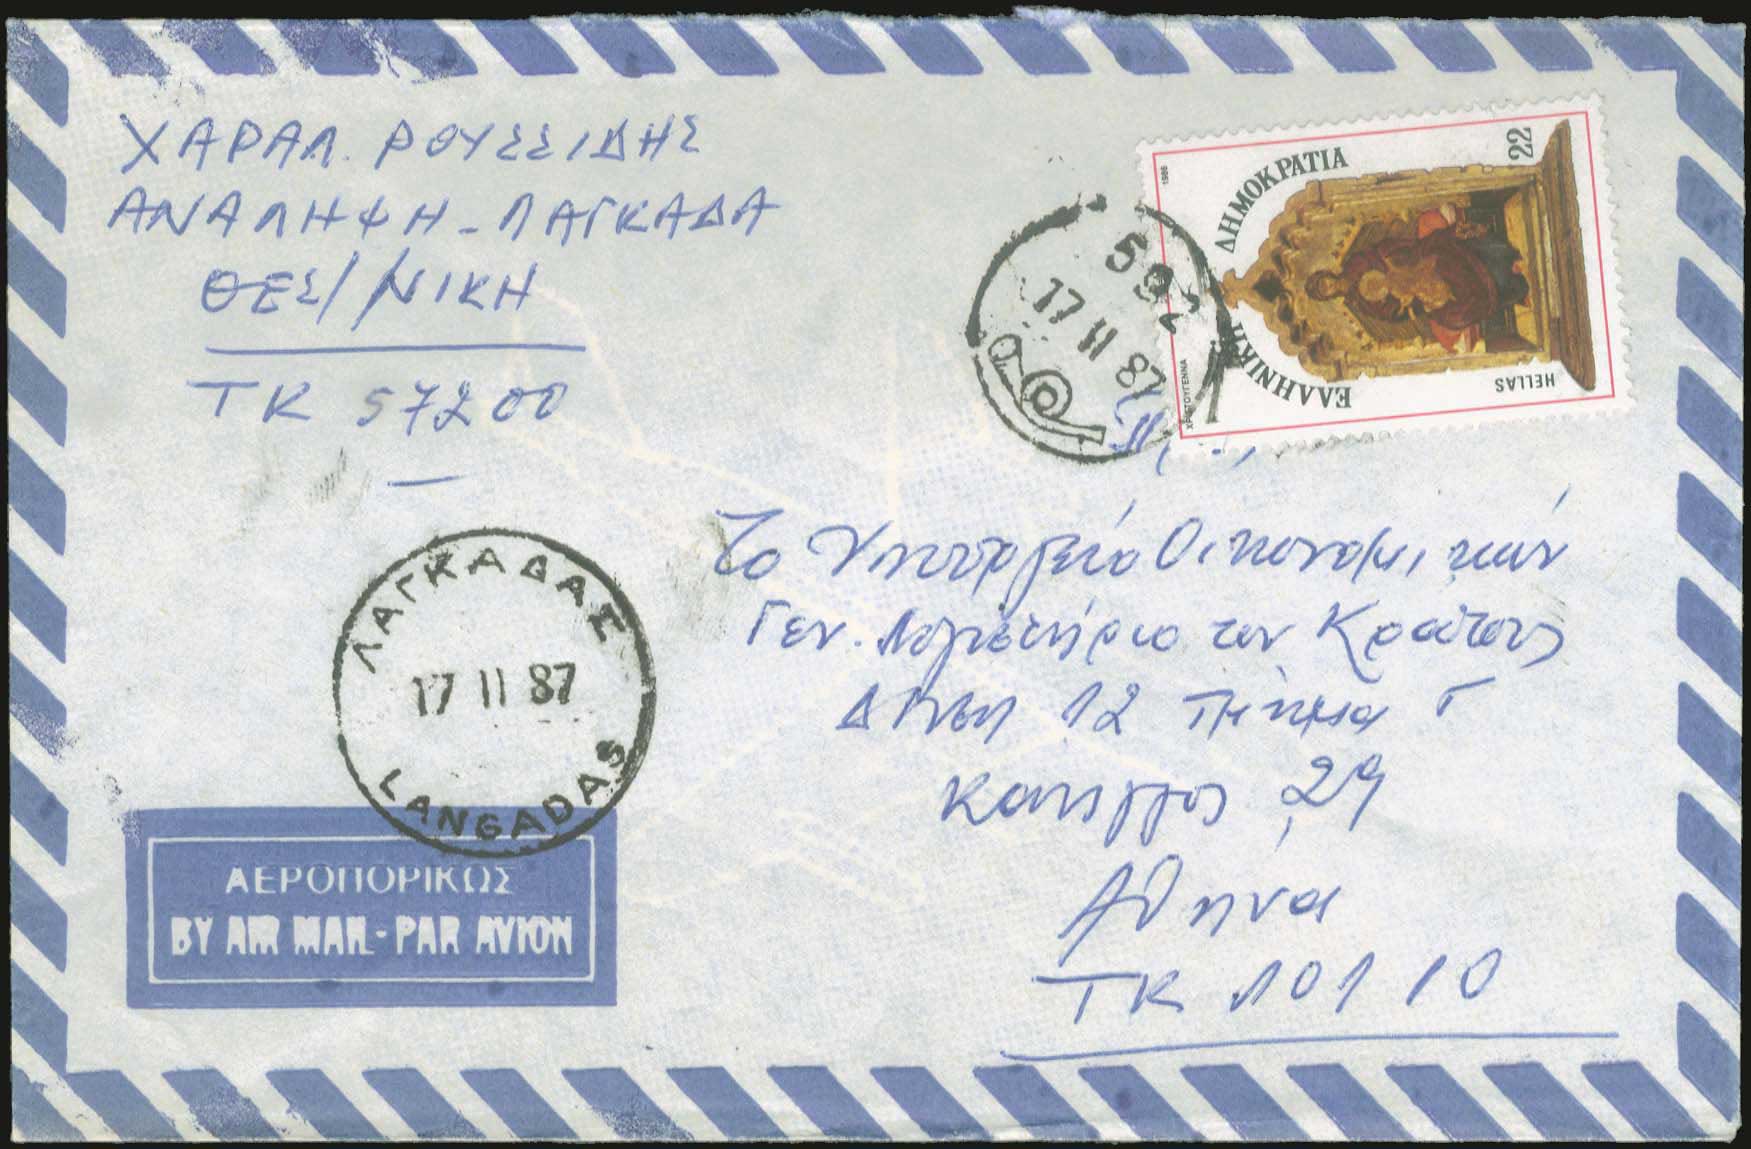 ΧΑΡΑΛ. ΡΟΥΣΣΙΔΗΣ
ΑΝΑΛΗΨΗ - ΛΑΓΚΑΔΑ
ΘΕΣ/ΝΙΚΗ
ΤΚ 57200
1986
ΕΛΛΗΝΙΚΗ ΔΗΜΟΚΡΑΤΙΑ
22
HELLAS
ΧΡΙΣΤΟΥΓΕΝΝΑ
17 II 87
Το Υπουργείο Οικονομικών
Γεν. Λογιστήριο του Κράτους
Δ/νση 12 Τμήμα Γ
Κάνιγγος 29
Αθήνα
ΤΚ 10110
ΛΑΓΚΑΔΑΣ
17 II 87
LANGADAS
ΑΕΡΟΠΟΡΙΚΩΣ
BY AIR MAIL - PAR AVION